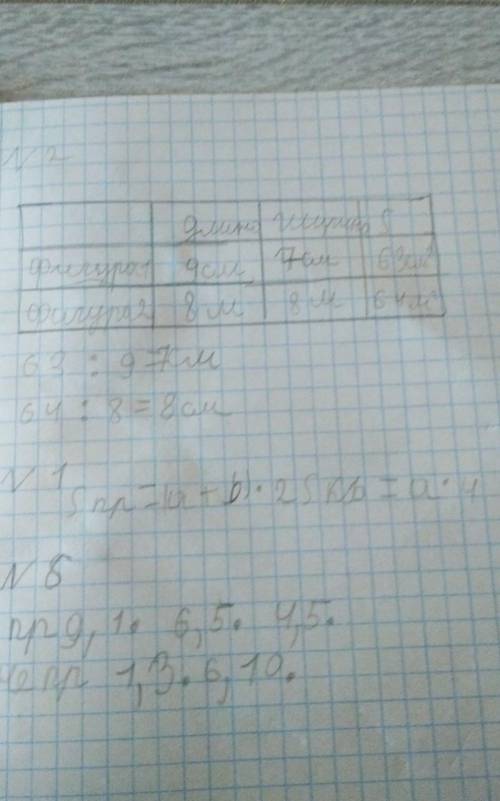 N 2
длина ширина S
фигура1 9см 7см 63см²
фигура2 8 м 8 м 64м²
63 : 9=7см
64 : 8 = 8см
N 1
S пр=(a+b)·2 S кв = a·4
N 5
пр 9,1. 6,5. 4,5.
непр 1,3. 6,10.